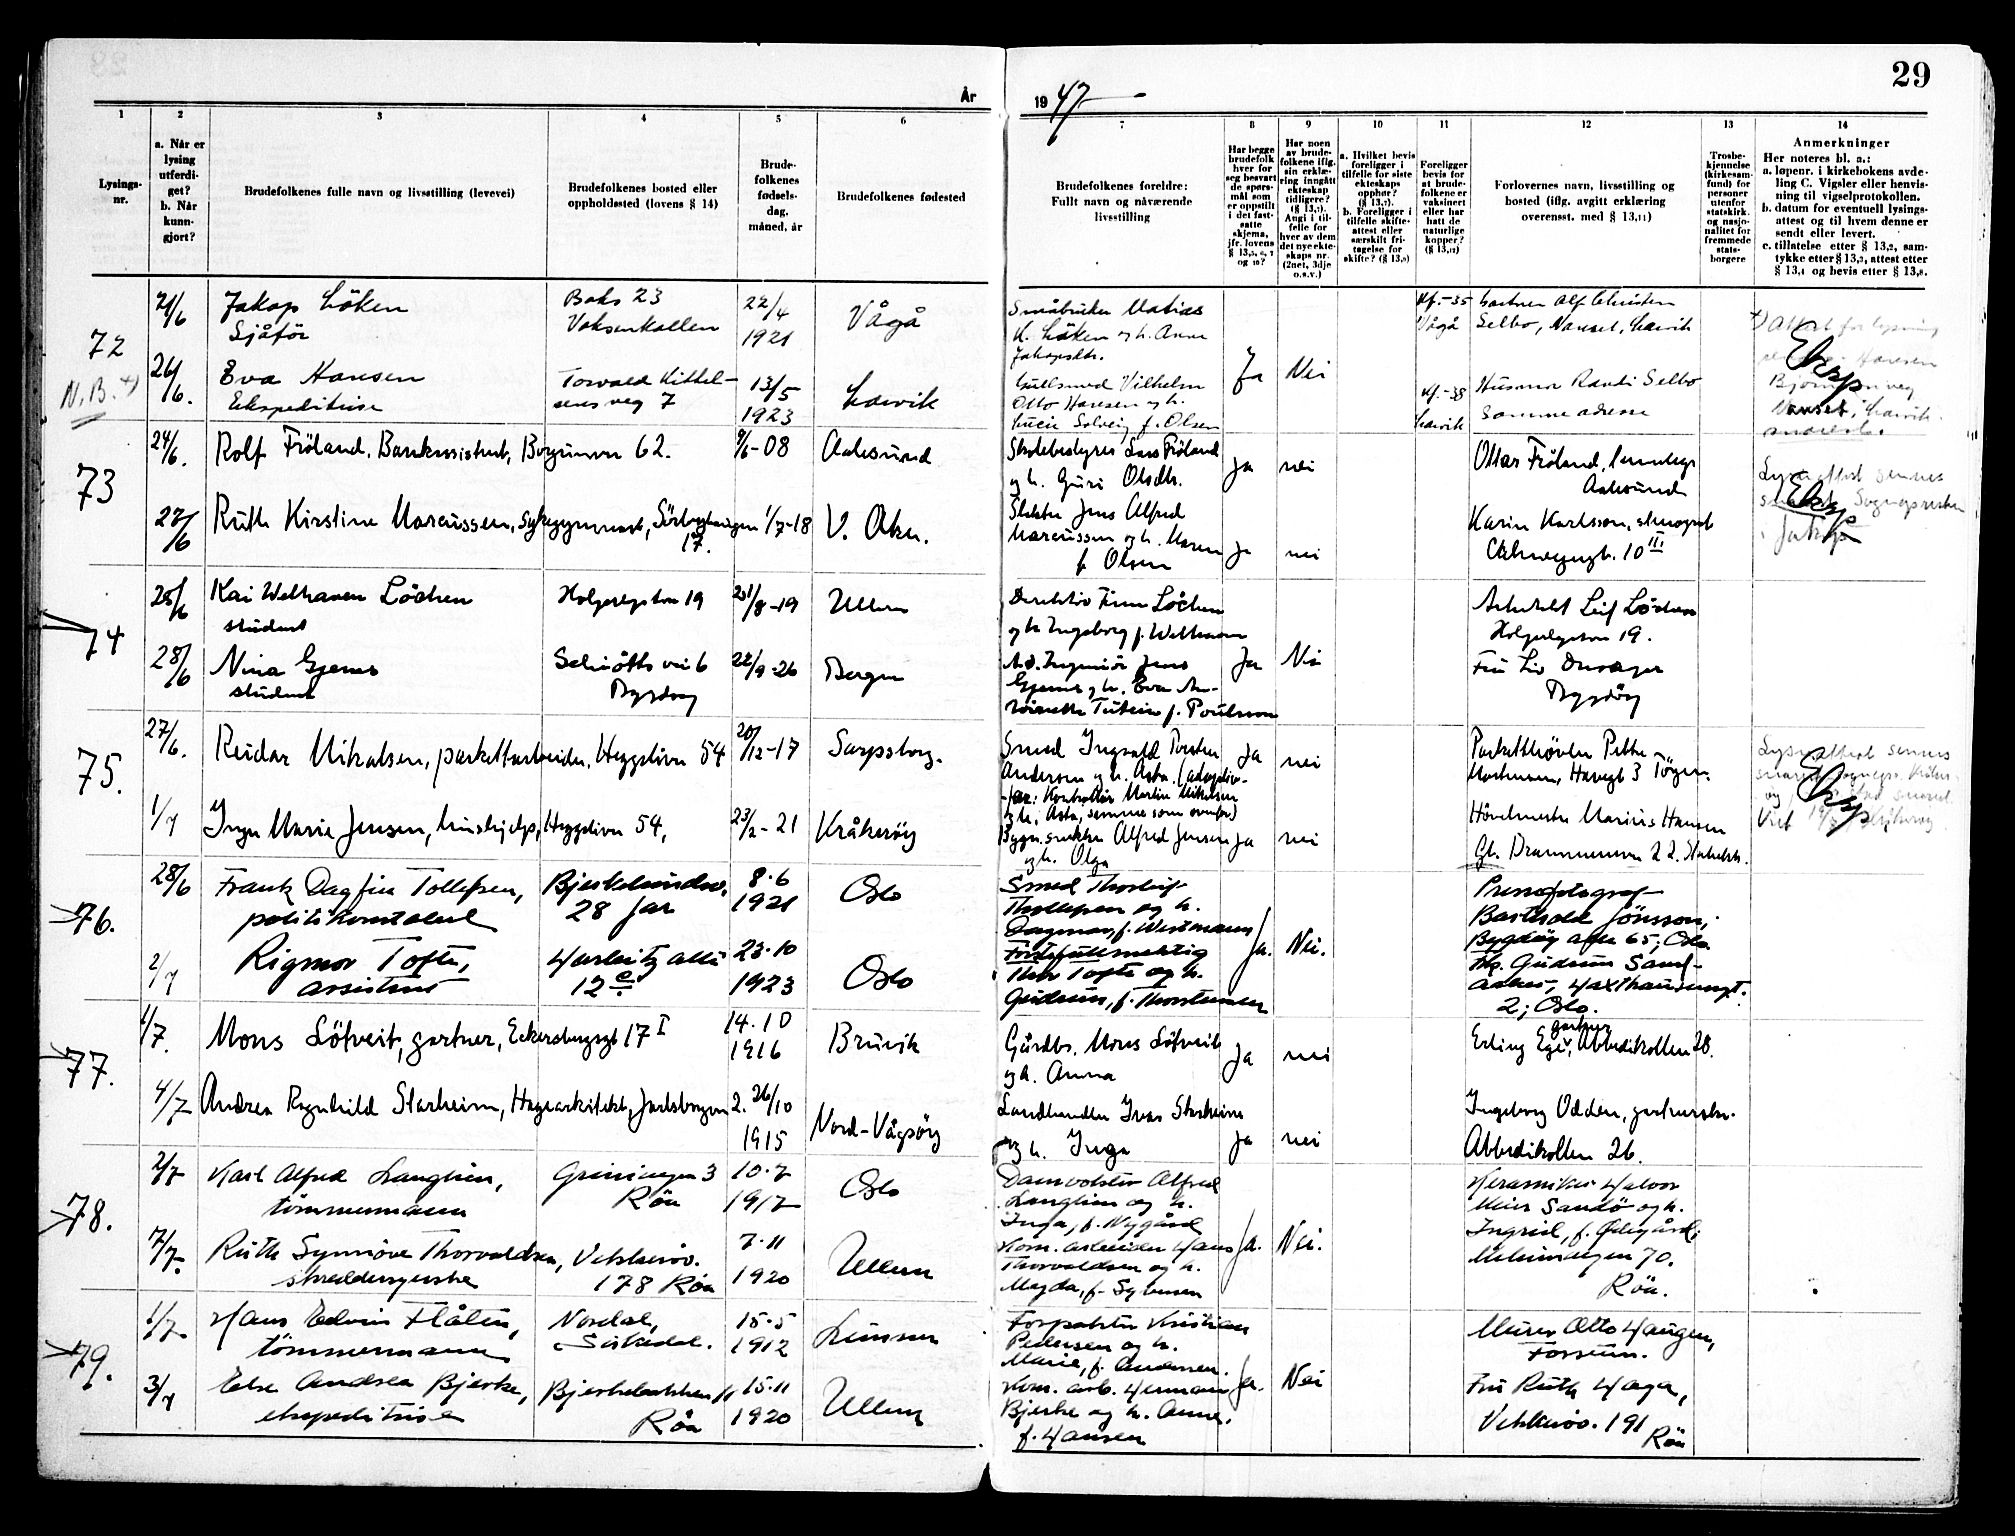 29
År
19 47
1
2
3
4
5
6
7
8
9
10
11
12
13
14
Lysings-
nr.
a. Når er
lysing
utferdi-
get?
b. Når
kunn-
gjort?
Brudefolkenes fulle navn og livsstilling (levevei)
Brudefolkenes bosted eller
oppholdssted (lovens § 14)
Brude-
folkenes
fødsels-
dag,
måned, år
Brudefolkenes fødested
Brudefolkenes foreldre:
Fullt navn og nåværende
livsstilling
Har begge
brudefolk
hver for
seg besvart
de spørs-
mål som
er oppstilt
i det fast-
satte
skjema,
jfr. lovens
Har noen
av brude-
folkene iflg.
sin erklæ-
ring inngått
ekteskap
tidligere?
Angi i til-
felle for
hver av dem
det nye ekte-
skaps nr.
(2net, 3dje
o.s.v.)
a. Hvilket bevis
foreligger i
tilfelle for siste
ekteskaps
opphør?
b. Foreligger i
tilfelle skifte-
attest eller
særskilt fri-
tagelse for
Foreligger
bevis for
at brude-
folkene er
vaksinert
eller har
hatt de
naturlige
kopper?
Forlovernes navn, livsstilling og
bosted (iflg. avgitt erklæring
overensst. med § 13,11)
Trosbe-
kjennelse
(kirkesam-
fund) for
personer
utenfor
statskirk.
og nasjo-
nalitet for
fremmede
stats-
borgere
Anmerkninger
Her noteres bl. a.:
a. løpenr. i kirkebokens avde-
ling C. Vigsler eller henvis-
ning til vigselprotokollen.
b. datum for eventuell lysings-
attest og til hvem denne er
sendt eller levert.
c. tillatelse etter § 13,2, sam-
tykke etter § 13,3, attest etter
§ 13,4 og bevis etter § 13,8.
72
N.B.
21/6
Jakop Löken
Sjåför
Boks 23
Voksenkollen
22/4
1921
Vågå
Småbruker Matias
K. Löken og h. Anna
Vågå
Selbo, Nanset, Larvik
26/6.
Eva Hansen
Ekspeditrise
Torvald Kittel-
sens veg 7
13/5
1923
Larvik
Gullsmed Vilhelm
Otto Hansen og h.
Lucie Solveig f. Olsen
Ja
Nei
Larvik
Husmor Randi Selbo
Samme adresse
Eksp
73
24/6.
Rolf Fröland, Bankassistent,
62.
9/6-08
Aalesund
og h. Guri Olsdtr.
Ja
nei
Ottar Fröland,
Aalesund
27/6
Ruth Kirstine Marcussen, Sykegymnast,
17.
1/7-18
V. Aker.
Jens Alfred
Marcussen og h. Maren
f. Olsen
Ja
nei
Karin Karlsson, stenograf
10 III
Eksp
74
25/6
Kai Welhaven Löchen
student
19
21/8-19
Ullern
Direktör Finn Löchen
og h. Ingeborg f. Welhaven
Arkitekt Leif Löchen
19.
28/6
Nina Gjerns
student
Schiötts vei 6
Bygdøy
22/9-26
Bergen
Ja
Nei
Fru Liv
Bygdöy
75.
27/6.
Reidar Mikalsen, parkettarbeider, Heggelivn 54
20/12-17
Sarpsborg.
Smed Ingvald Torsten
Andersen og h. Asta. (adoptiv-
far: Kontrollör Martin Mikalsen
og h. Asta, samme som ovenfor)
Ja
nei
3 Töyen.
1/7
Inger Marie Jensen, hushjelp, Heggelivn 54,
23/2-21
Kråkeröy
Alfred Jensen
og h. Olga
Ja
nei
Marius Hansen
Gl. Drammensvn 22. Stabekk.
Eksp.
76.
28/6
Frank Dagfin Tollefsen,
politikonstabel
Bjerkelundsv.
28 Jar
8.6
1921
Oslo
Smed Thorleif
Thollefsen og h.
Dagmar, f. Westmann
Pressefotograf
Barthold Jönsson,
Bygdöy alle 65, Oslo
2/7
Rigmor Tofte,
assistent
Harbitz alle
12 c.
23.10
1923
Oslo
Forstefullmektig
Thor Tofte og h.
Gudrun, f. Thorstensen
Ja.
Nei.
Frk. Gudrun Sand-
aaker, Waxthausensgt.
2, Oslo.
77.
1/7.
Mons Löfveit, gartner, Eckersbergsgt 17 I
14.10
1916
Bruvik
Gårdbr. Mons Löfveit
og h. Anna
Ja
nei
Erling Ege, gartner Abbedikollen 28.
4/7
Andrea Ragnhild Starheim, Hagearkitekt, Jarlsborgvn 2.
26/10
1915
Nord-Vågsöy
Landhandler Ivar Starheim
og h. Inga
Ja
nei
Ingeborg Odden,
Abbedikollen 26.
78.
2/7
Karl Alfred Langlien,
tömmermann
Griniveyen 3
Röa
10.7
1917
Oslo
Damvokter Alfred
Langlien og h.
Inga, f. Nygård
Keramiker Halvor
Meier Sandö og h.
Ingrid, f. Ödegård,
7/7.
Ruth Synnöve Thorvaldsen,
skreddersyerske
Vekkeröv.
178 Röa
7.11
1920
Ullern
Kom. arbeider Hans
Thorvaldsen og h.
Magda, f. Syversen
Ja.
Nei.
70.
Röa.
79.
1/7
Hans Edvin Flåten,
tömmermann
Nordal,
Sörkedal.
15.5
1912
Lunner
Forpakter Kristian
Pedersen og h.
Marie, f. Andersen.
Murer Otto Haugen,
Fossum.
3/7
Else Andrea Bjerke,
ekspeditrise
Bjerkebakken 11
Röa
15.11
1920
Ullern
Kom. arb. Herman
Bjerke og h. Anne,
f. Hansen
Ja.
Nei
Fru Ruth Haga,
Vekkeröv. 191
Röa